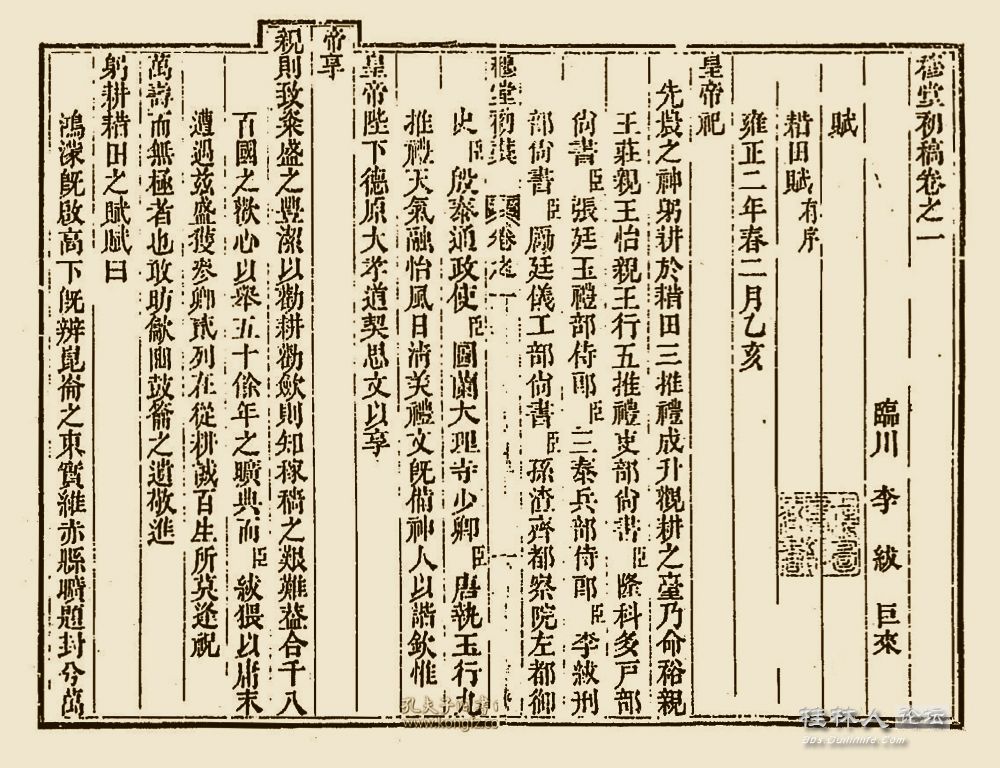 穆堂初稿卷之一
臨川 李紱 巨來
賦
耤田賦有序
雍正二年春二月乙亥
皇帝祀
先農之神躬耕於耤田三推禮成升觀耕之臺乃命裕親
王莊親王怡親王行五推禮吏部尚書臣隆科多戸部
尚書臣張廷玉禮部侍郎臣三泰兵部侍郎臣李紱刑
部尚書臣勵廷儀工部尚書臣孫渣齊都察院左都御
穆堂初藁 卷之一
史臣殷泰通政使臣圖蘭大理寺少卿臣唐執玉行九
推禮天氣融怡風日淸美禮文旣備神人以諧欽惟
皇帝陛下德原大孝道契思文以享
帝享
親則致粢盛之豐潔以勸耕勸斂則知稼穡之艱難葢合千八
百國之歡心以舉五十餘年之曠典而臣紱猥以庸末
遭遇玆盛獲參卿貳列在從耕誠百生所莫逢祝
萬壽而無極者也敢昉歈豳鼓籥之遺敬進
躬耕耤田之賦賦曰
鴻濛旣啟高下旣辨崑崙之東實維赤縣曠題封兮萬
孔夫子舊書網
www.kongfz.com
桂林人论坛
bbs.Guilinlife.com